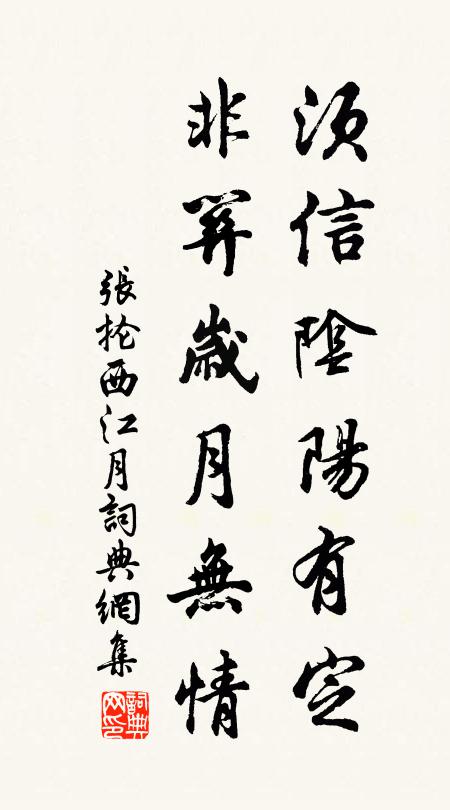 須信陰陽有定
非筭歲月無情
張掄西江月詞典網集
詞典網印